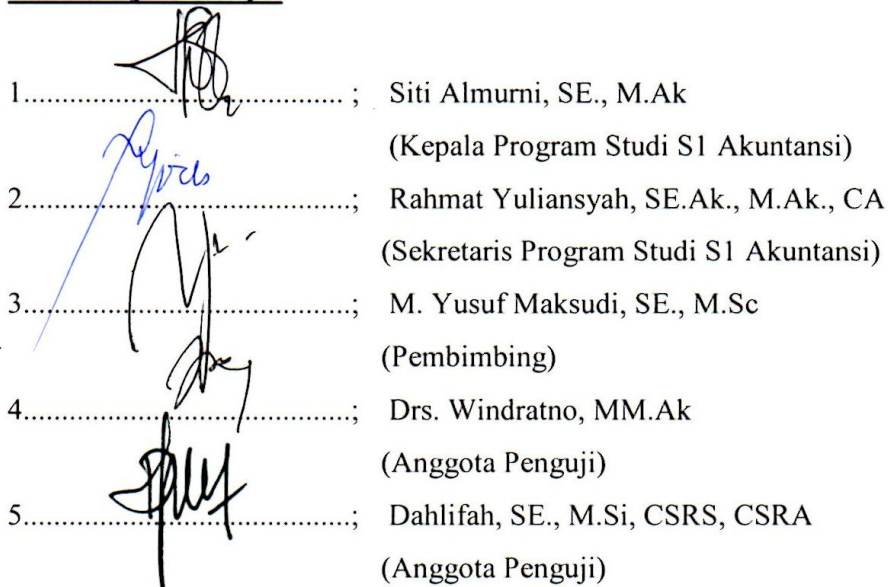 1........................................ ; Siti Almurni, SE., M.Ak
(Kepala Program Studi S1 Akuntansi)
2........................................; Rahmat Yuliansyah, SE.Ak., M.Ak., CA
(Sekretaris Program Studi S1 Akuntansi)
3........................................; M. Yusuf Maksudi, SE., M.Sc
(Pembimbing)
4........................................; Drs. Windratno, MM.Ak
(Anggota Penguji)
5........................................; Dahlifah, SE., M.Si, CSRS, CSRA
(Anggota Penguji)